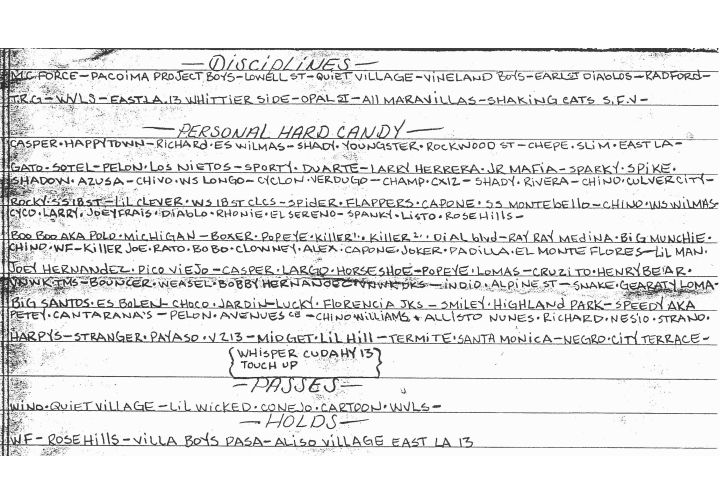 —DISCIPLINES—
M.C. FORCE—PACOIMA PROJECT BOYS—LOWELL ST—QUIET VILLAGE—VINELAND BOYS—EARL ST DIABLOS—RADFORD—
T.R.G—WVLS—EAST LA.13 WHITTIER SIDE—OPAL ST—All MARAVILLAS—SHAKING CATS S.F.V—
—PERSONAL HARD CANDY—
CASPER·HAPPYTOWN—RICHARD·ES WILMAS—SHADY·YOUNGSTER·ROCKWOOD ST—CHEPE·SLIM·EAST LA—
GATO·SOTEL—PELON·LOS NIETOS—SPORTY·DUARTE—LARRY HERRERA·JR MAFIA—SPARKY·SPIKE·
SHADOW·AZUSA—CHIVO·WS LONGO—CYCLON·VERDUGO—CHAMP·CX12—SHADY·RIVERA—CHINO·CULVER CITY—
ROCKY·SS 18 ST—LIL CLEVER·WS 18 ST CLCS—SPIDER·FLAPPERS·CAPONE·SS MONTEBELLO—CHINO·WS WILMAS·
CYCO·LARRY·JOEY FRAIS·DIABLO·RHONIE·EL SERENO—SPANKY·LISTO·ROSE HILLS—
BOO BOO AKA POLO·MICHIGAN—BOXER·POPEYE·KILLER 1·KILLER 2·DIAL blvd—RAY RAY MEDINA·BIG MUNCHIE·
CHINO·WF—KILLER JOE·RATO·BOBO·CLOWNEY·ALEX·CAPONE·JOKER·PADILLA·EL MONTE FLORES—LIL MAN·
JOEY HERNANDEZ·PICO VIEJO—CASPER·LARGO·HORSESHOE—POPEYE·LOMAS—CRUZITO·HENRY BEAR·
VNWK TMS—BOUNCER·WEASEL·BOBBY HERNANDEZ·VNWK—INDIO·ALPINE ST—SNAKE·GEARATY LOMA·
BIG SANTOS·ES BOLEN—CHOCO·JARDIN—LUCKY·FLORENCIA JKS—SMILEY·HIGHLAND PARK—SPEEDY AKA
PETEY·CANTARANA'S—PELON·AVENUES—CHINO WILLIAMS & ALLISTO NUNES·RICHARD·NESIO·STRANO·
HARPYS—STRANGER·PAYASO·V 213—MIDGET·LIL HILL—TERMITE·SANTA MONICA—NEGRO·CITY TERRACE—
{WHISPER CUDAHY 13
TOUCH UP}
—PASSES—
WINO·QUIET VILLAGE—LIL WICKED·CONEJO·CARTOON·WVLS—
—HOLDS—
WF—ROSE HILLS—VILLA BOYS PASA—ALISO VILLAGE EAST LA 13